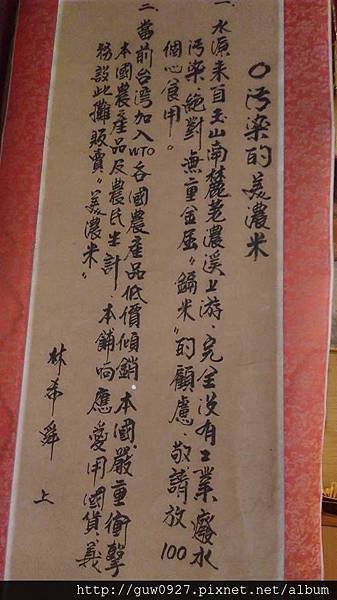 〇污染的美濃米
一、水源來自玉山南麓荖濃溪上游、完全沒有工業廢水
污染、絕對無重金屈“鎘米”的顧慮、敬請放100
個心食用。
二、當前台湾加入WTO各國農產品低價傾銷本國、嚴重衝擊
本國農產品及農民生計、本舖响應愛用國貨、義
務設此攤販賣“美濃米”
林希舜 上
http://guw0927.pixnet.net/album